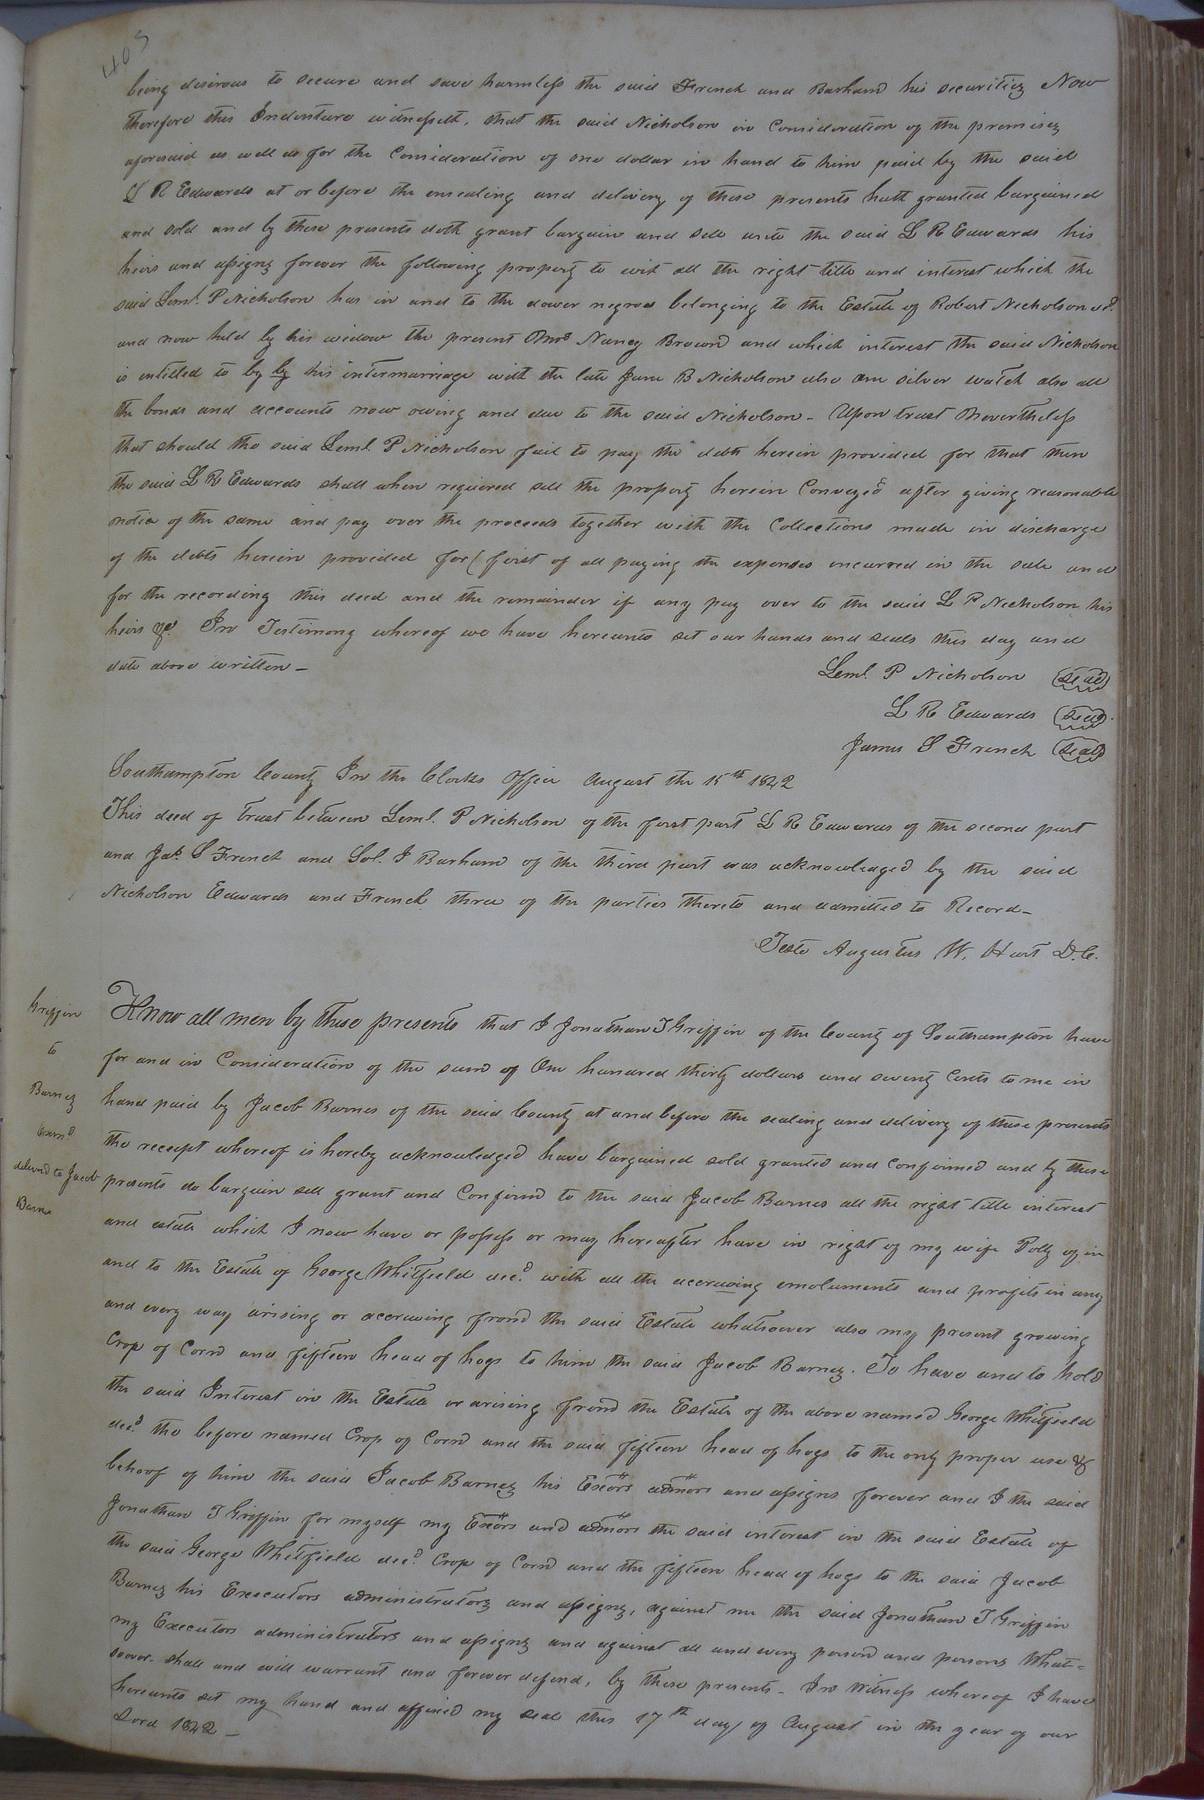 405
being desirous to secure and save harmless the said French and Barham his securities Now
therefore this Indenture witnesseth, that the said Nicholson in Consideration of the premises
aforesaid as well as for the Consideration of one dollar in hand to him paid by the said
L R Edwards at or before the ensealing and delivery of these presents hath granted bargained
and sold and by these presents doth grant bargain and sell unto the said L R Edwards his
heirs and assigns forever the following property to wit all the right title and interest which the
said Leml. P Nicholson has in and to the dower negroes belonging to the Estate of Robert Nicholson decd.
and now held by his widow the present Mrs Nancy Brown and which interest the said Nicholson
is entitled to by by his intermarriage with the late Jane B Nicholson also one silver watch also all
the bonds and accounts now owing and due to the said Nicholson - Upon trust Nevertheless
that should the said Leml. P Nicholson fail to pay the debts herein provided for that then
the said L R Edwards shall when required sell the property herein Conveyed after giving reasonable
notice of the same and pay over the proceeds together with the Collections made in discharge
of the debts herein provided for ( first of all paying the expenses incurred in the sale and
for the recording this deed and the remainder if any pay over to the said L P Nicholson his
heirs &c. In Testimony whereof we have hereunto set our hands and seals this day and
date above written -
Leml. P Nicholson (Seal)
L R Edwards (Seal)
James S French (Seal)
Southampton County In the Clerks Office August the 15th 1842
This deed of trust between Leml. P Nicholson of the first part L R Edwards of the second part
and Jas. S French and Sol. J Barham of the third part was acknowledged by the said
Nicholson Edwards and French three of the parties thereto and admitted to Record -
Teste Augustus W. Hart D.C.
Griffin
to
Barnes
Examd
deliverd to Jacob
Barnes
Know all men by these presents that I Jonathan T Griffin of the County of Southampton have
for and in Consideration of the sum of One hundred thirty dollars and seventy Cents to me in
hand paid by Jacob Barnes of the said County at and before the sealing and delivery of these presents
the receipt whereof is hereby acknowledged have bargained sold granted and confirmed and by these
presents do bargain sell grant and Confirm to the said Jacob Barnes all the right title interest
and estate which I now have or possess or may hereafter have in right of my wife Polly of in
and to the Estate of George Whitfield decd. with all the accruing emoluments and profits in any
and every way arising or accruing from the said Estate whatsoever also my present growing
Crop of Corn and fifteen head of hogs to him the said Jacob Barnes. To have and to hold
the said Interest in the Estate or arising from the Estate of the above named George Whitfield
decd. the before named Crop of Corn and the said fifteen head of hogs to the only proper use &
behoof of him the said Jacob Barnes his Exors admors and assigns forever and I the said
Jonathan T Griffin for myself my Exors and admors the said interest in the said Estate of
the said George Whitfield decd. Crop of Corn and the fifteen head of hogs to the said Jacob
Barnes his Executors administrators and assigns, against me the said Jonathan T Griffin
my Executors administrators and assigns and against all and every person and persons What=
soever shall and will warrant and forever defend, by these presents - In Witness whereof I have
hereunto set my hand and affixed my seal this 17th day of August in the year of our
Lord 1842 -